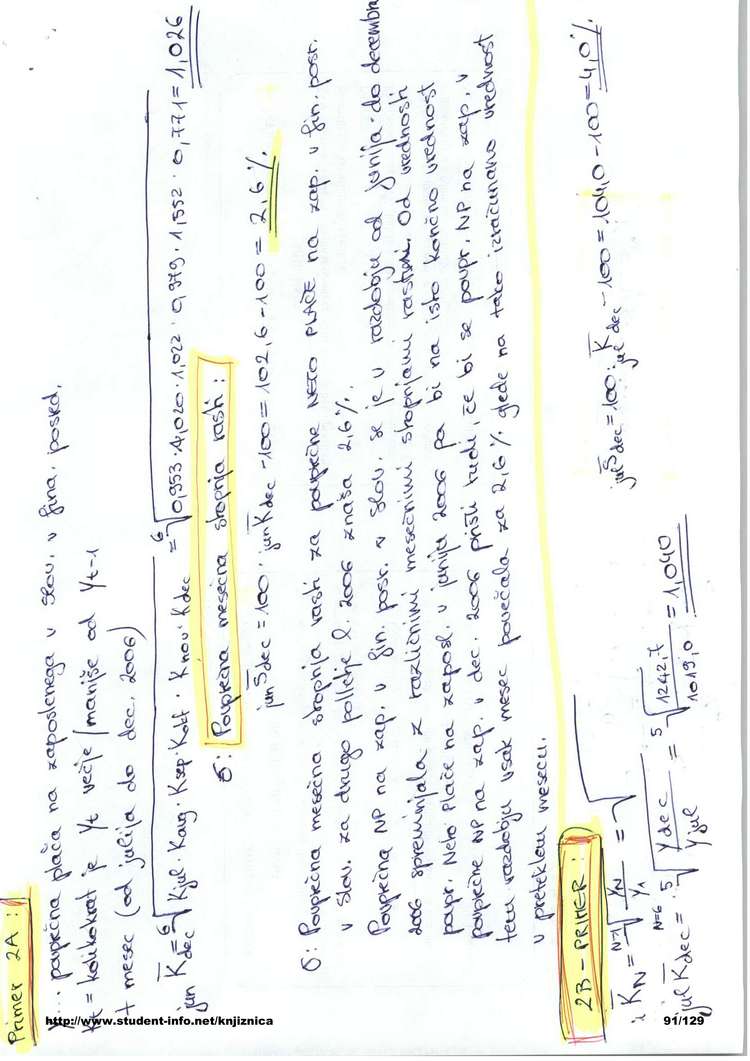 Primer 2A:
Y... povprečna plača na zaposlenega v Slov. v fina. posred.
Kt = kolikokrat je Yt večje/manjše od Yt-1
t mesec (od julija do dec. 2006)
jun K̄dec = ⁶√Kjul · Kavg · Ksep · Kokt · Knov · Kdec = ⁶√0,953 · 1,020 · 1,022 · 0,979 · 1,552 · 0,771 = 1,026
S̄: Povprečna mesečna stopnja rasti:
jun S̄dec = 100 · jun K̄dec - 100 = 102,6 - 100 = 2,6 %
S̄: Povprečna mesečna stopnja rasti za povprečne NETO PLAČE na zap. v fin. posr.
v Slov. za drugo polletje l. 2006 znaša 2,6 %.
Povprečna NP na zap. v fin. posr. v Slov. se je v razdobju od junija do decembra
2006 spreminjala z različnimi mesečnimi stopnjami rasti. Od vrednosti
povpr. Neto plače na zaposl. v juniju 2006 pa bi na isto končno vrednost
povprečne NP na zap. v dec. 2006 prišli tudi, če bi se povpr. NP na zap. v
tem razdobju vsak mesec povečala za 2,6 % glede na tako izračunano vrednost
v preteklem mesecu.
2B - PRIMER:
1 K̄N = N-1√YN/Y1 = √
N=6
jul K̄dec = ⁵√Ydec/Yjul = ⁵√1242,7/1019,0 = 1,040
jul S̄dec = 100 · jul K̄dec - 100 = 104,0 - 100 = 4,0 %
http://www.student-info.net/knjiznica
91/129